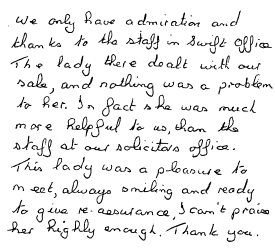 we only have admiration and
thanks to the staff in Swift Office
The lady there dealt with our
sale, and nothing was a problem
to her. In fact she was much
more helpful to us, than the
staff at our solicitors office.
This lady was a pleasure to
meet, always smiling and ready
to give re-assurance, I can't praise
her highly enough. Thank you.